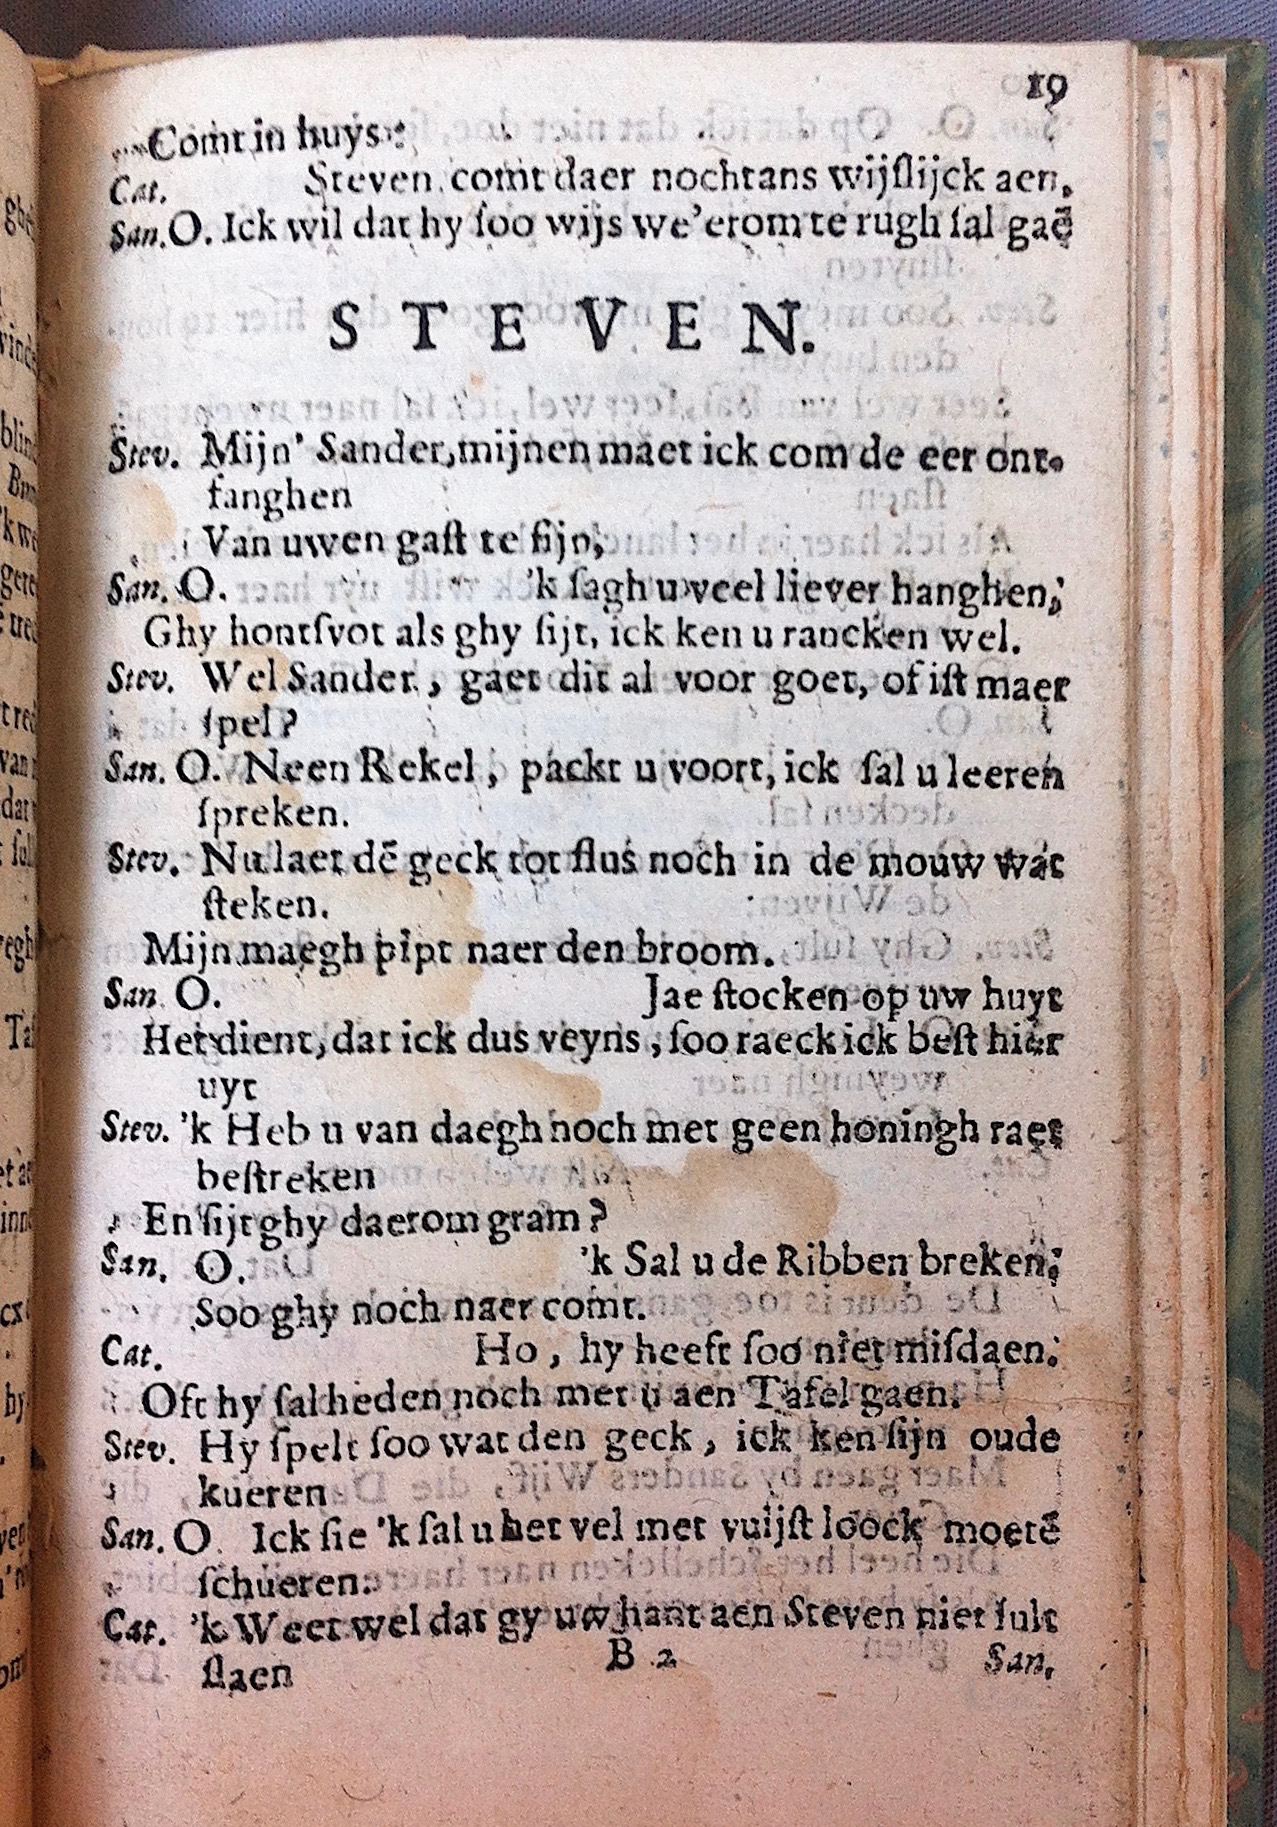 19
Comt in huys:
Cat. Steven comt daer nochtans wijſlijck aen,
San. O. Ick wil dat hy ſoo wijs we'erom te rugh ſal gaē
STEVEN.
Stev. Mijn' Sander, mijnen maet ick com de eer ont-
fanghen
Van uwen gaſt te ſijn,
San. O. 'k ſagh u veel liever hanghen,
Ghy hontſvot als ghy ſijt, ick ken u rancken wel.
Stev. Wel Sander, gaet dit al voor goet, of iſt maer
ſpel?
San. O. Neen Rekel, packt u voort, ick ſal u leeren
ſpreken.
Stev. Nu laet dē geck tot flus noch in de mouw wat
ſteken.
Mijn maegh pipt naer den broom.
San. O. Jae ſtocken op uw huyt
Het dient, dat ick dus veyns, ſoo raeck ick beſt hier
uyt
Stev. 'k Heb u van daegh noch met geen honingh raet
beſtreken
En ſijt ghy daerom gram?
San. O. 'k Sal u de Ribben breken,
Soo ghy noch naer comt.
Cat. Ho, hy heeft ſoo niet miſdaen.
Oft hy ſal heden noch met u aen Tafel gaen.
Stev. Hy ſpelt ſoo wat den geck, ick ken ſijn oude
kueren
San. O. Ick ſie 'k ſal u het vel met vuijſt loock moetē
ſchueren.
Cat. 'k Weet wel dat gy uw hant aen Steven niet ſult
ſlaen
B 2 San.